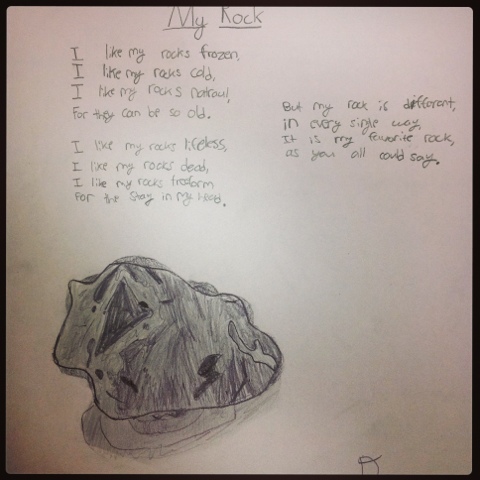 My Rock
I like my rocks frozen,
I like my rocks cold,
I like my rocks natraul,
For they can be so old.
I like my rocks lifeless,
I like my rocks dead,
I like my rocks freeform
For the stay in my head.
But my rock is different,
in every single way,
It is my favorite rock,
as you all could say.